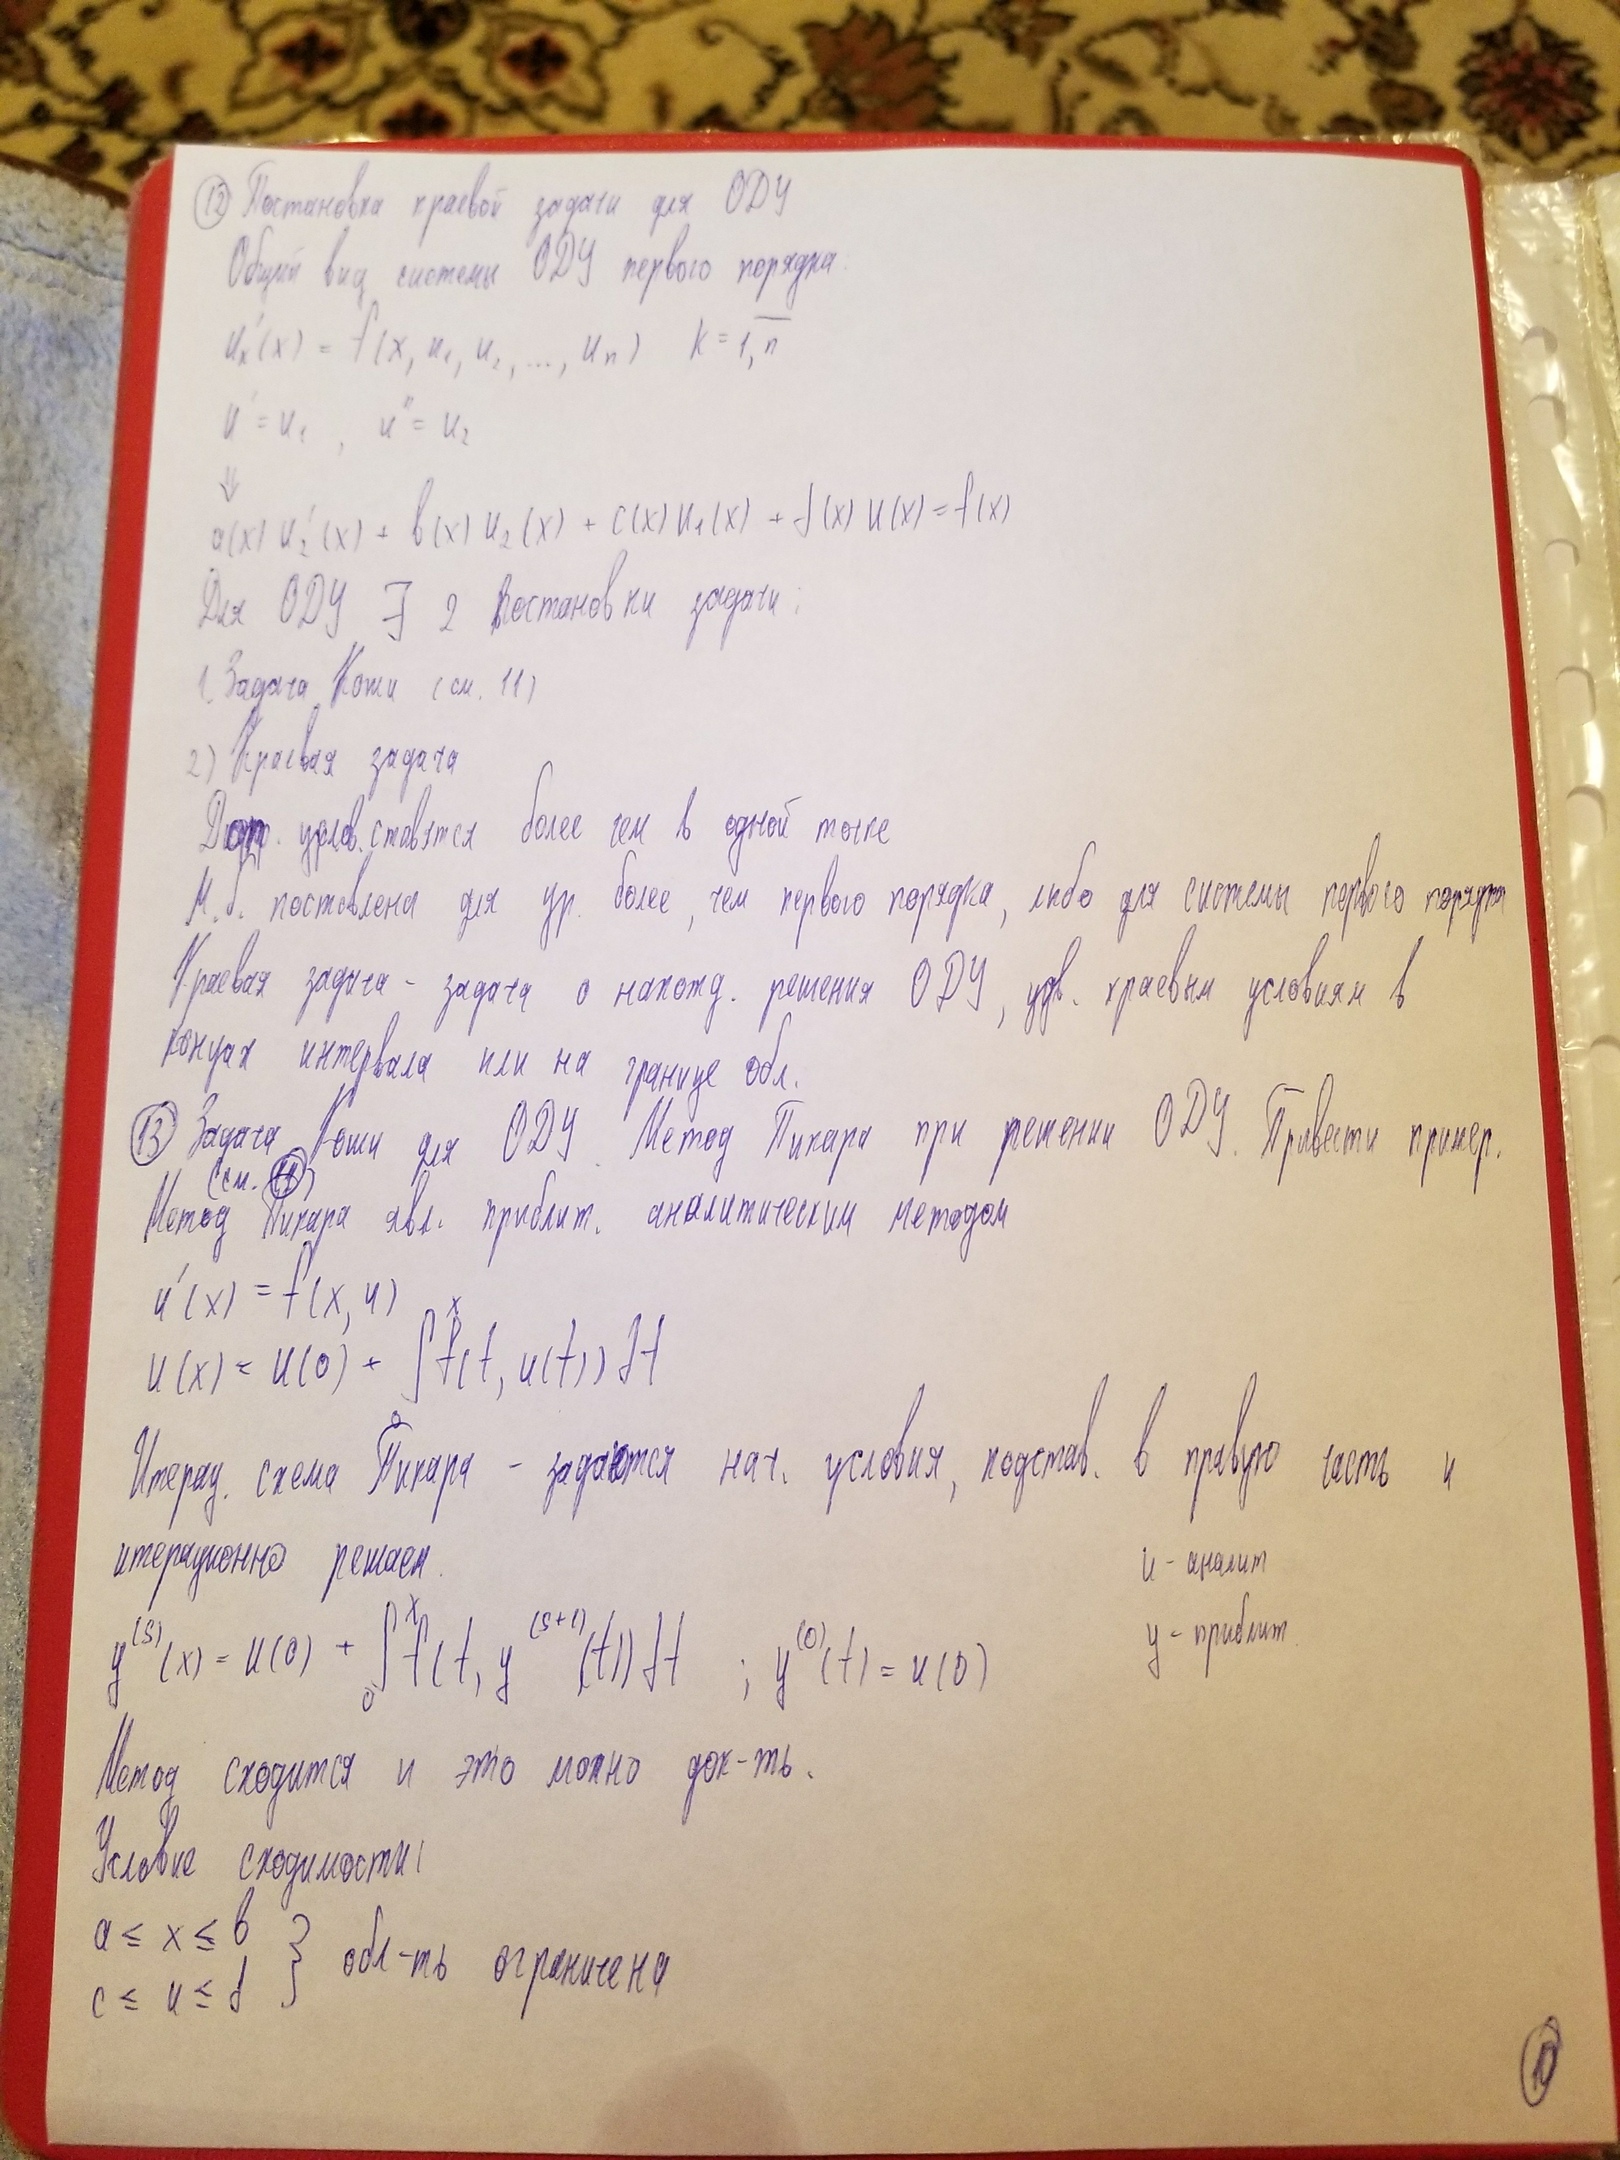 ⑫ Постановка краевой задачи для ОДУ
Общий вид системы ОДУ первого порядка:
uₖ'(x) = f(x, u₁, u₂, ..., uₙ) k = 1,n̅
u' = u₁, u'' = u₂
⇓
a(x) u₂'(x) + b(x) u₂(x) + c(x) u₁(x) + d(x) u(x) = f(x)
Для ОДУ ∃ 2 постановки задачи:
1. Задача Коши (см. 11)
2) Краевая задача
Доп. услов. ставятся более чем в одной точке
М.б. поставлена для ур. более, чем первого порядка, либо для системы первого порядка
Краевая задача - задача о нахожд. решения ОДУ, удв. краевым условиям в
концах интервала или на границе обл.
⑬ Задача Коши для ОДУ. Метод Пикара при решении ОДУ. Привести пример.
(см. ⑪)
Метод Пикара явл. приближ. аналитическим методом
u'(x) = f(x, u)
u(x) = u(0) + ∫₀ˣ f(t, u(t)) dt
Итерац. схема Пикара - задаются нач. условия, подстав. в правую часть и
итерационно решаем.
u - аналит
y⁽ˢ⁾(x) = u(0) + ∫₀ˣ f(t, y⁽ˢ⁺¹⁾(t)) dt ; y⁽⁰⁾(t) = u(0)
y - приближ.
Метод сходится и это можно док-ть.
Условие сходимости:
a ≤ x ≤ b
c ≤ u ≤ d } обл-ть ограничена
⑩